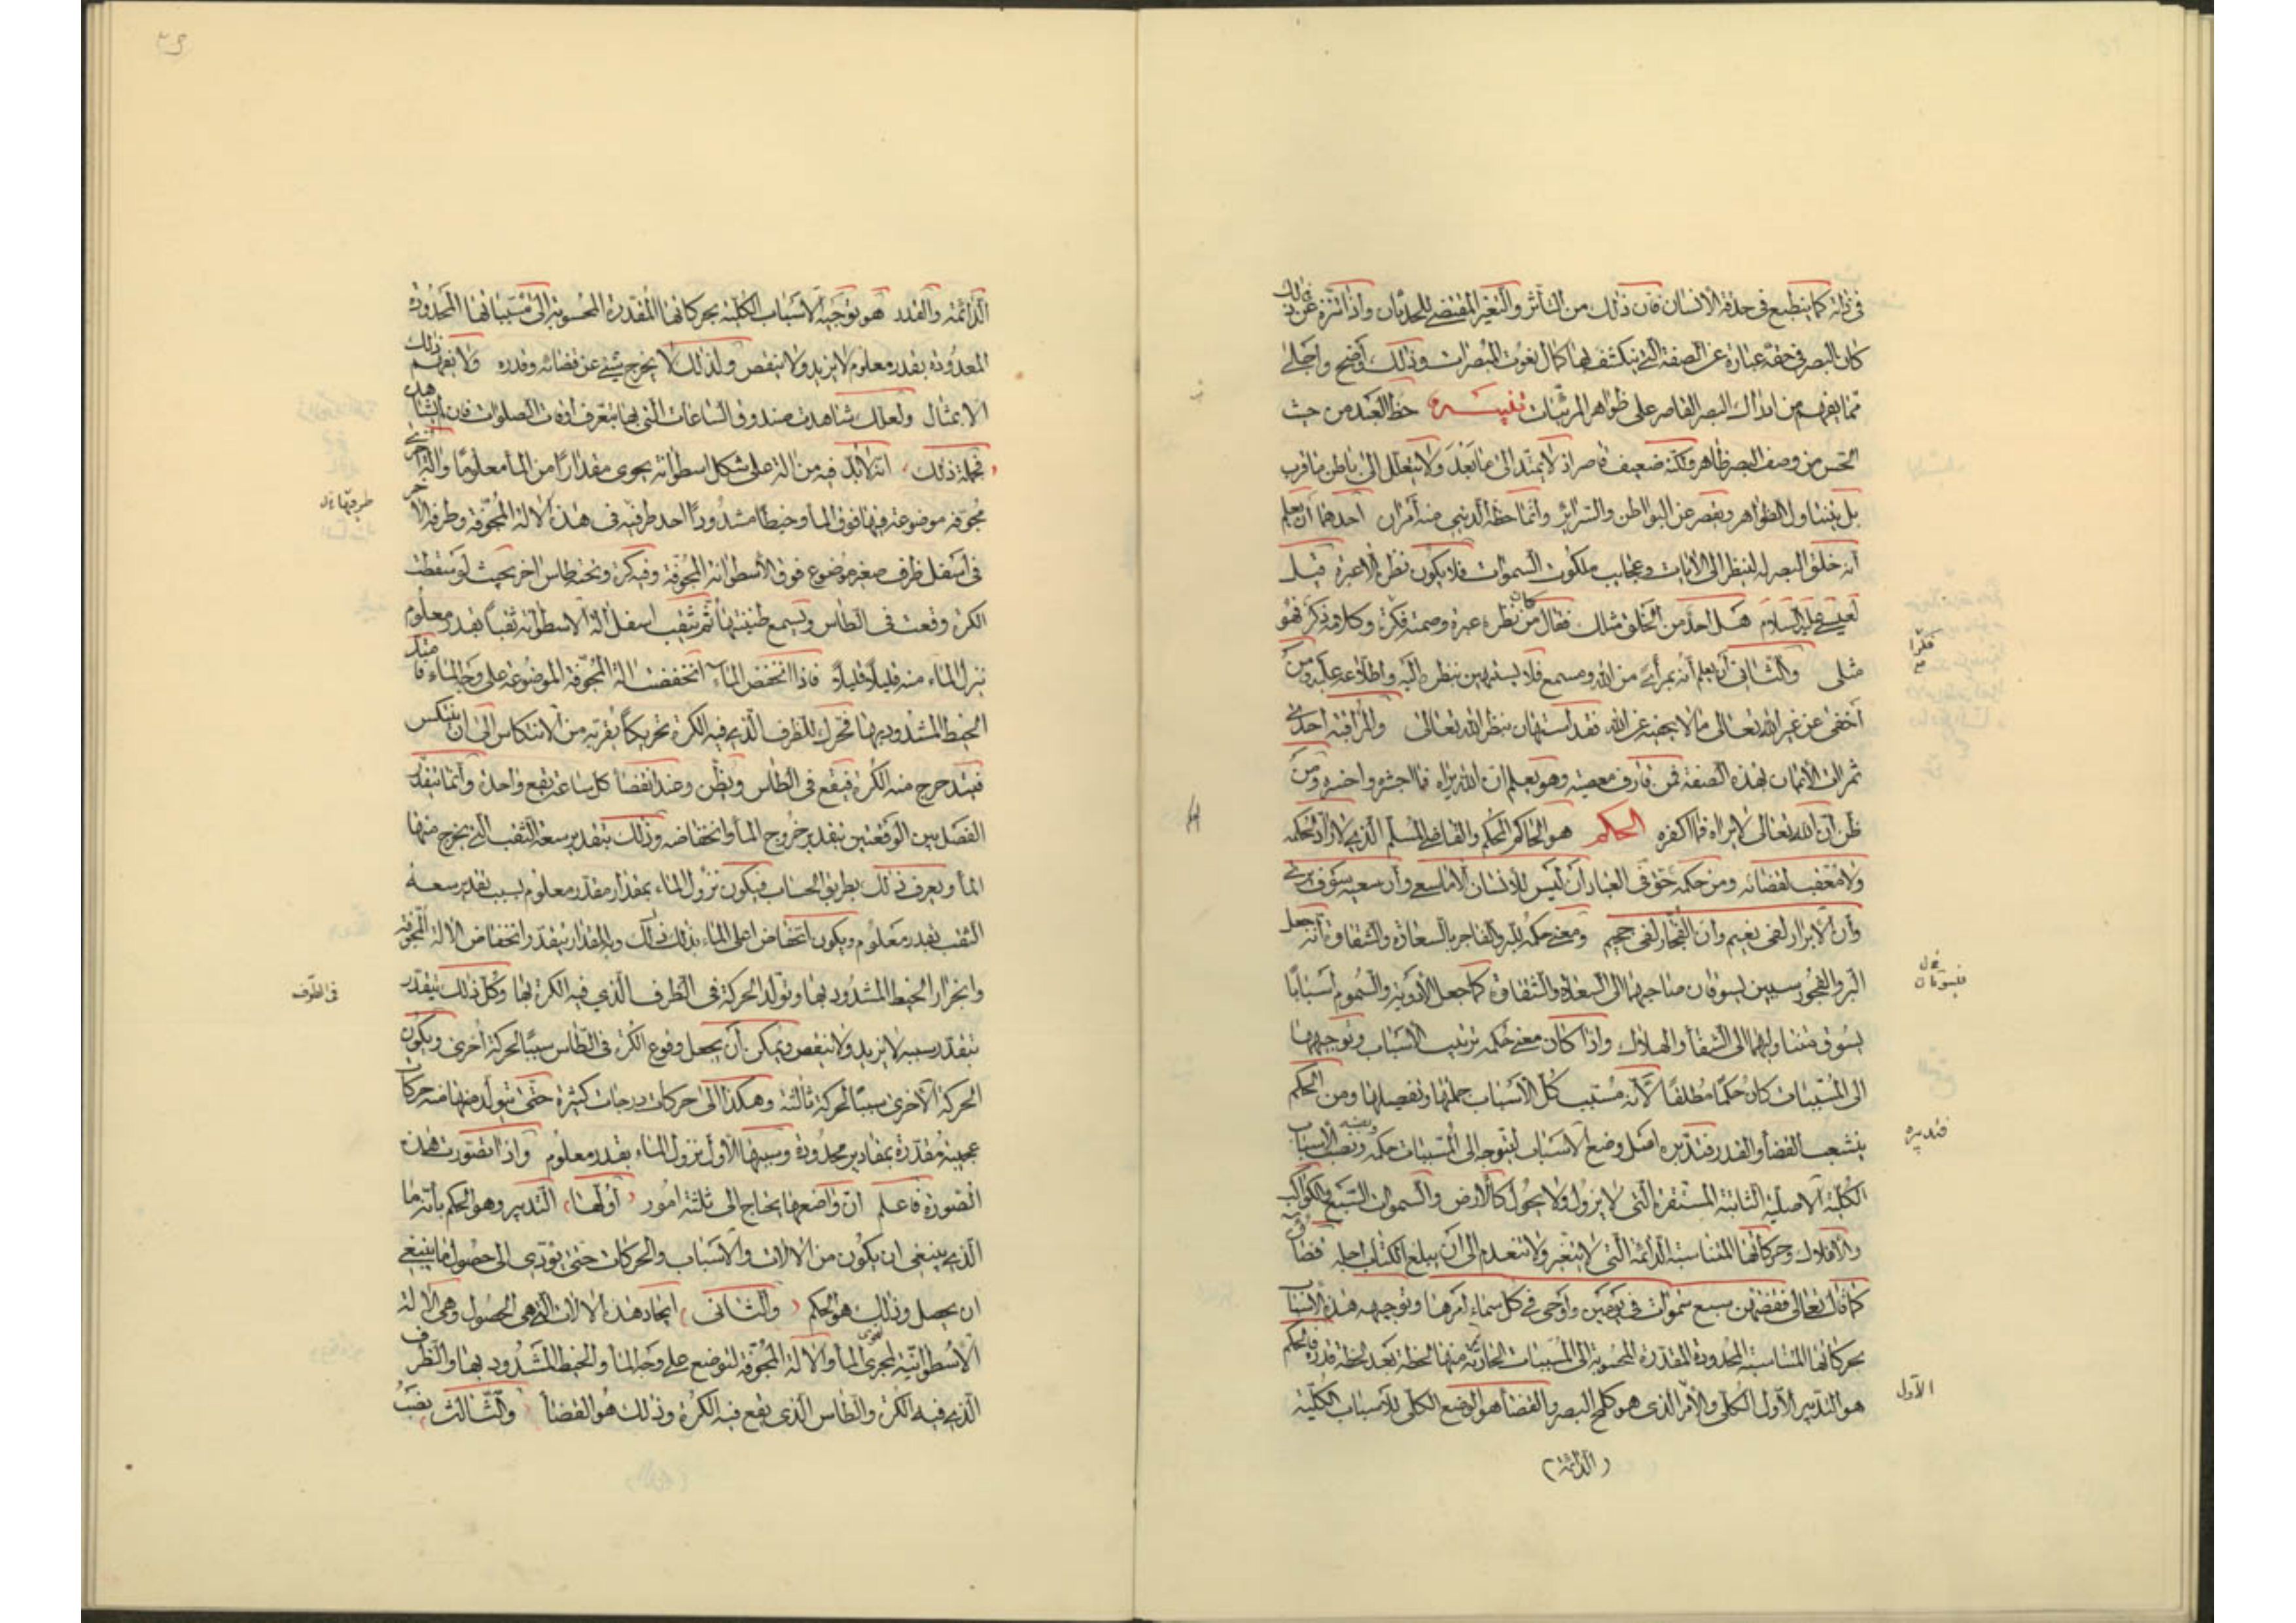 في ذاته كما ينطبع في حدقة الانسان فان ذلك من التأثر والتغير المقتضي للحدثان واذا نزه عن ذلك
كان البصر في حقه عبارة عن الصفة التي ينكشف بها كمال نعوت المبصرات وذلك اوضح واجلى
مما يفهم من ادراك البصر القاصر على ظواهر المرئيات تنبيه حظ العبد من حيث
الحس من وصف البصر ظاهر ولكنه ضعيف قاصر اذ لا يمتد الى ما بعد ولا يتغلغل الى باطن ما قرب
بل يتناول الظواهر ويقصر عن البواطن والسرائر وانما حظه الديني منه أمران احدهما أن يعلم
أنه خلق البصر له لينظر الى الايات وعجايب ملكوت السموات فلا يكون نظره الا عبرة قيل
لعيسى عليه السلام هل احد من الخلق مثلك فقال من كان نظره عبرة وصمته فكرة وكلامه ذكر فهو
مثلى والثاني أن يعلم أنه بمرأى من الله ومسمع فلا يستهين بنظره اليه واطلاعه عليه ومن
أخفى عن غير الله تعالى ما لا يخفيه عن الله فقد استهان بنظر الله تعالى والمراقبة احدى
ثمرات الايمان بهذه الصفة فمن قارف معصية وهو يعلم ان الله يراه فما اجسره واخسره ومن
ظن أن الله تعالى لا يراه فما اكفره الحكم هو الحاكم المحكم والقاضي المسلم الذي لا راد لحكمه
ولا معقب لقضائه ومن حكمه في حق العباد أن ليس للانسان الا ما سعى وأن سعيه سوف يرى
وأن الابرار لفى نعيم وان الفجار لفى جحيم ومعنى حكمه للبر والفاجر بالسعادة والشقاوة أنه جعل
البر والفجور سببين يسوقان صاحبهما الى السعادة والشقاوة كما جعل الادوية والسموم أسبابا
يسوق متناولهما الى الشفأ والهلاك واذا كان معنى حكمه ترتيب الاسباب وتوجيهها
الى المسببات كان حكما مطلقا لأنه مسبب كل الاسباب جملتها وتفصيلها ومن الحكم
ينشعب القضأ والقدر فتدبيره اصل وضع الاسباب ليتوجه الى المسببات حكمه ونصب الاسباب
الكلية الاصلية الثابتة المستقرة التى لا يزول ولا يحول كالارض والسموات السبع والكواكب
والافلاك وحركاتها المتناسبة الدائمة التى لا يتغير ولا تنعدم الى ان يبلغ الكتاب اجله قضاؤه
كما قال تعالى فقضهن سبع سموات في يومين وأوحى في كل سماء أمرها وتوجيهه هذه الاسباب
بحركاتها المتناسبة المحدودة المقدرة المحسوبة الى المسببات الحادثة منها لحظة بعد لحظة قدره فالحكم
هو التدبير الاول الكلى والامر الذى هو كلمح البصر والقضأ هو الوضع الكلى للاسباب الكلية
(الدائمة)
فتدبيره
الاول
الدائمة والقدر هو توجيه الاسباب الكلية بحركاتها المقدرة المحسوبة الى مسبباتها المحدودة
المعدودة بقدر معلوم لا يزيد ولا ينقص ولذلك لا يخرج شئ عن قضائه وقدره ولا يفهم ذلك
الا بمثال ولعلك شاهدت صندوق الساعات التى بها يتعرف اوقات الصلوات فان لم تشاهده
فجملة ذلك انه لابد فيه من الة على شكل اسطوانة يحوى مقدارا من المأ معلوما والة اخرى
مجوفة موضوعة فيها فوق المأ وخيط مشدود احد طرفيه في هذه الالة المجوفة وطرفه الاخر
في أسفل ظرف صغير موضوع فوق الاسطوانة المجوفة وفيه كرة وتحته طاس اخر بحيث لو سقطت
الكرة وقعت في الطاس ويسمع طنينها ثم يثقب اسفل الة الاسطوانة ثقبا بقدر معلوم
ينزل الماء منه قليلا قليلا فاذا انخفض الماء انخفضت الالة المجوفة الموضوعة على وجه الماء فامتد
الخيط المشدود بها فتحرك للظرف الذي فيه الكرة تحريكا يقربه من الانتكاس الى ان ينتكس
فيتدحرج منه الكرة فيقع في الطاس ويطن وعند انقضأ كل ساعة يقع واحدة وانما يتقدر
الفصل بين الوقعتين بتقدير خروج المأ وانخفاضه وذلك بتقدير سعة الثقب الذي يخرج منها
المأ ويعرف ذلك بطريق الحساب فيكون نزول الماء بمقدار مقدر معلوم بسبب تقدير سعة
الثقب بقدر معلوم ويكون انخفاض اعلى الماء بذلك وبالمقدار يتقدر وانخفاض الالة المجوفة
وانجرار الخيط المشدود بها وتولد الحركة في الظرف الذي فيه الكرة بها وكل ذلك يتقدر
بتقدر سببه لا يزيد ولا ينقص ويمكن أن يجعل وقوع الكرة في الطاس سببا لحركة أخرى ويكون
الحركة الاخرى سببا لحركة ثالثة وهكذا الى حركات درجات كثيرة حتى يتولد منها منه حركات
عجيبة مقدرة بمقادير محدودة وسببها الاول نزول الماء بقدر معلوم واذا تصورت هذه
الصورة فاعلم ان واضعها يحتاج الى ثلثة امور أولها التدبير وهو الحكم بأنه ما
الذي ينبغي ان يكون من الالات والاسباب والحركات حتى يؤدي الى حصول ما ينبغي
ان يحصل وذلك هو الحكم والثانى ايجاد هذه الالات التي هي الحصول وهي الالة
الاسطوانية لتحوى المأ والالة المجوفة لتوضع على وجه المأ والخيط المشدود بها والظرف
الذي فيه الكرة والطاس الذي يقع فيه الكرة وذلك هو القضأ والثالث نصب